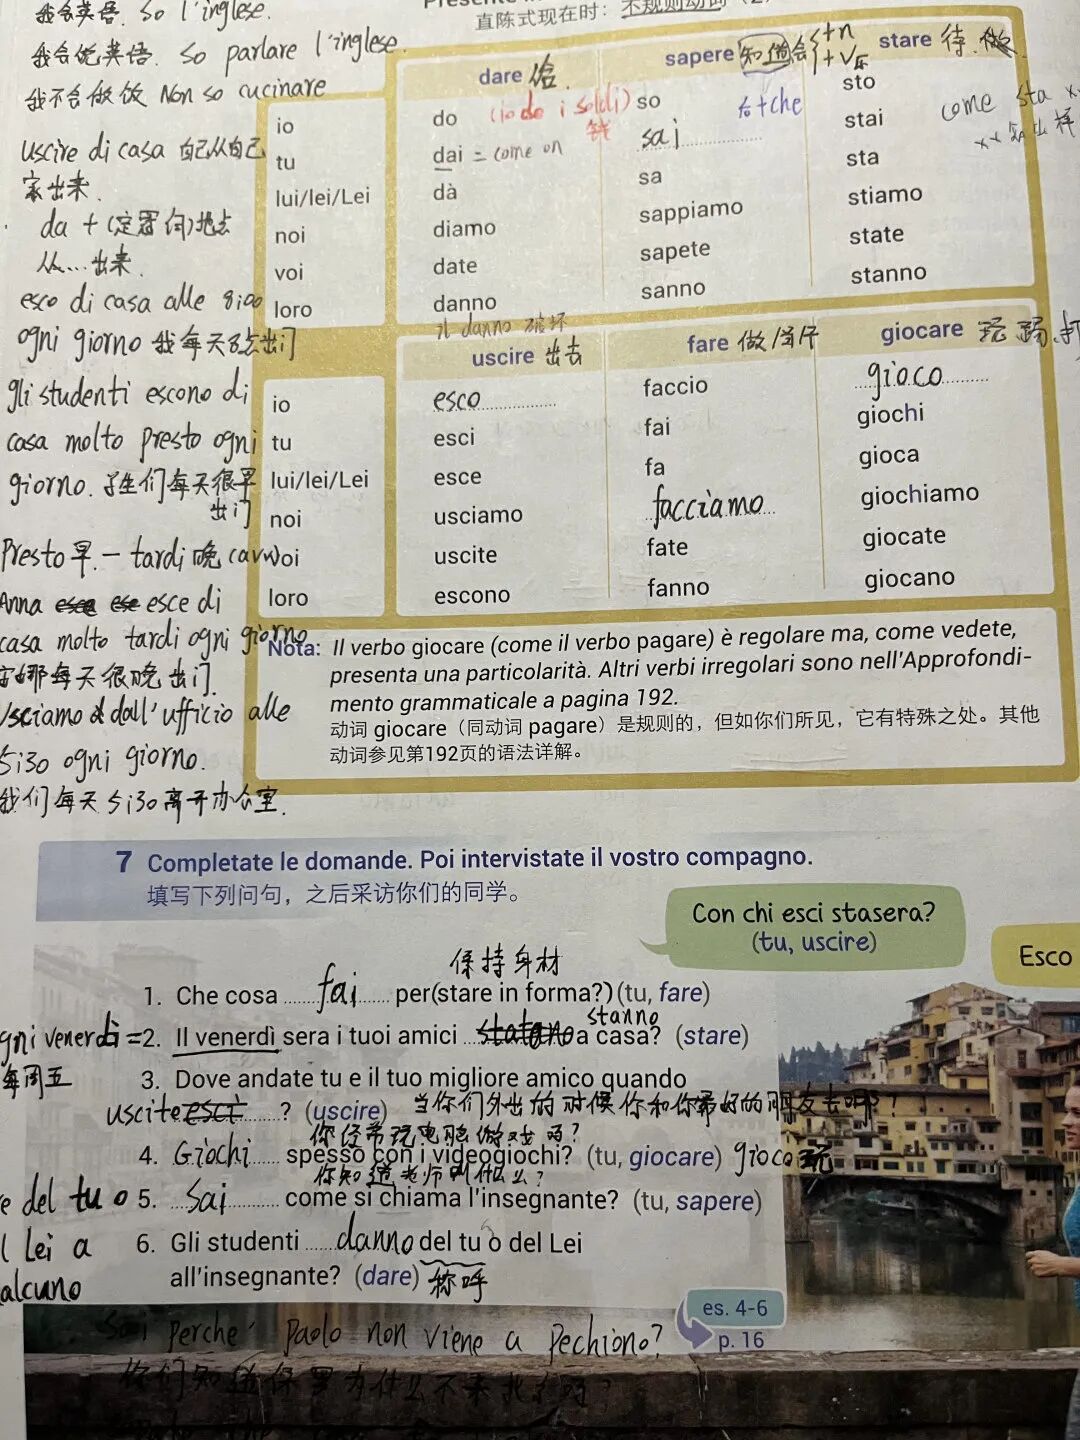 我会英语. So l'inglese.
我会说英语. So parlare l'inglese.
我不会做饭 Non so cucinare
uscire di casa 自己从自己
家出来.
da + (定冠词)地点
从...出来.
esco di casa alle 8:00
ogni giorno 我每天8点出门
gli studenti escono di
casa molto presto ogni
giorno. 学生们每天很早
出门
Presto 早 - tardi 晚 (avv)
Anna esce di
casa molto tardi ogni giorno
安娜每天很晚出门.
Usciamo dall'ufficio alle
5:30 ogni giorno.
我们每天5:30离开办公室.
直陈式现在时：不规则动词
dare 给 sapere 知道 会 +n +V原 stare 待
io do (io do i soldi) 钱 so 后+che sto
tu dai = come on sai stai come sta
lui/lei/Lei dà sa sta
noi diamo sappiamo stiamo
voi date sapete state
loro danno sanno stanno
il danno 破坏
uscire 出去 fare 做 giocare 玩
io esco faccio gioco
tu esci fai giochi
lui/lei/Lei esce fa gioca
noi usciamo facciamo giochiamo
voi uscite fate giocate
loro escono fanno giocano
Nota: Il verbo giocare (come il verbo pagare) è regolare ma, come vedete,
presenta una particolarità. Altri verbi irregolari sono nell'Approfondi-
mento grammaticale a pagina 192.
动词 giocare（同动词 pagare）是规则的，但如你们所见，它有特殊之处。其他
动词参见第192页的语法详解。
7 Completate le domande. Poi intervistate il vostro compagno.
填写下列问句，之后采访你们的同学。
Con chi esci stasera?
(tu, uscire)
Esco
保持身材
1. Che cosa fai per (stare in forma?) (tu, fare)
stanno
2. Il venerdì sera i tuoi amici a casa? (stare)
ogni venerdì =
每周五
3. Dove andate tu e il tuo migliore amico quando
uscite ? (uscire) 当你们外出的时候你和你最好的朋友去哪?
你经常玩电脑游戏吗?
4. Giochi spesso con i videogiochi? (tu, giocare) gioco 玩
你知道老师叫什么?
5. Sai come si chiama l'insegnante? (tu, sapere)
6. Gli studenti danno del tu o del Lei
all'insegnante? (dare) 称呼
re del tu o
l Lei a
alcuno
es. 4-6
p. 16
Sai perché Paolo non viene a Pechiono?
你们知道保罗为什么不来北京吗?